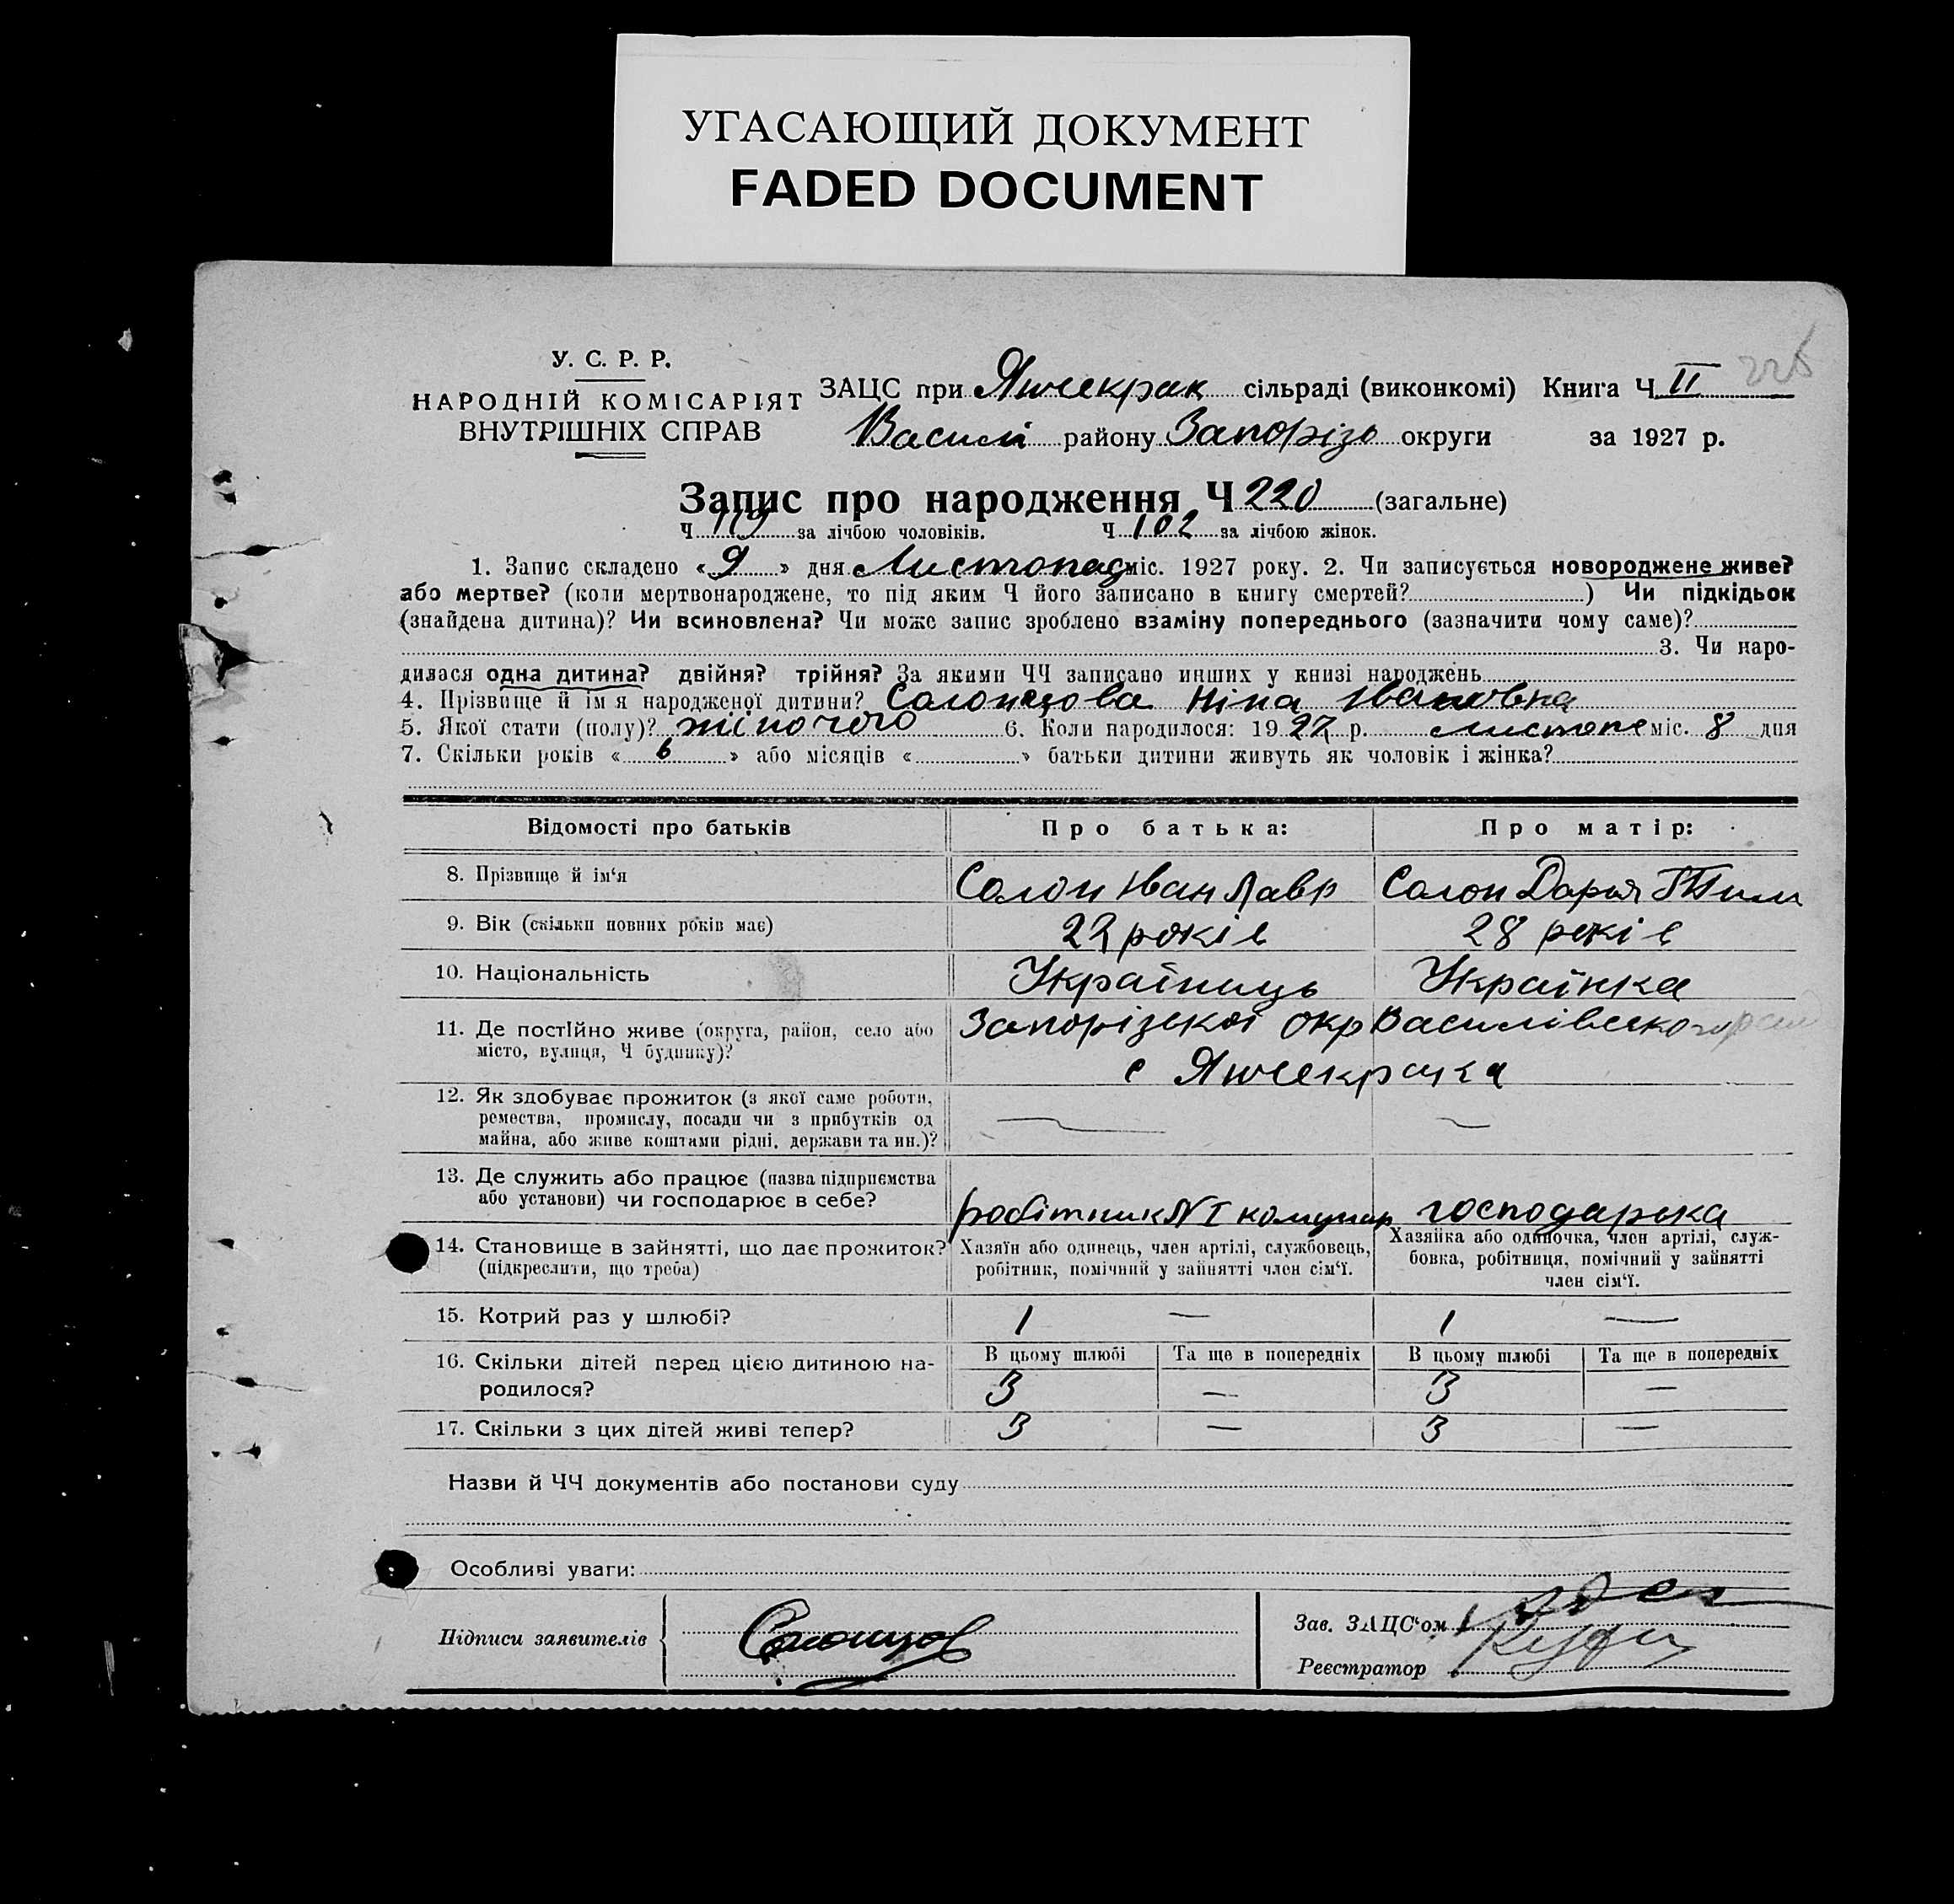 УГАСАЮЩИЙ ДОКУМЕНТ
FADED DOCUMENT
226
У. С. Р. Р.
НАРОДНІЙ КОМІСАРІЯТ
ВНУТРІШНІХ СПРАВ
ЗАЦС при Янчекрак сільраді (виконкомі) Книга Ч II
Василі району Запоріз округи за 1927 р.
Запис про народження Ч 220 (загальне)
Ч 119 за лічбою чоловіків. Ч 102 за лічбою жінок.
1. Запис складено «9» дня Листопад міс. 1927 року. 2. Чи записується новороджене живе?
або мертве? (коли мертвонароджене, то під яким Ч його записано в книгу смертей? ) Чи підкідьок
(знайдена дитина)? Чи всиновлена? Чи може запис зроблено взаміну попереднього (зазначити чому саме)?
3. Чи наро-
дилася одна дитина? двійня? трійня? За якими ЧЧ записано инших у книзі народжень
4. Прізвище й ім'я народженої дитини? Солонцова Ніна Івановна
5. Якої стати (полу)? жіночого 6. Коли народилося: 1927 р. листопа міс. 8 дня
7. Скільки років «6» або місяців « » батьки дитини живуть як чоловік і жінка?
Відомості про батьків Про батька: Про матір:
8. Прізвище й ім'я Солон Іван Лавр Солон Дарья
9. Вік (скільки повних років має) років 28 років
10. Національність Українець Українка
11. Де постІйно живе (округа, район, село або Запорізької окр Василівського
місто, вулиця, Ч будинку)? с Янчекрака
12. Як здобуває прожиток (з якої саме роботи,
ремества, промислу, посади чи з прибутків од
майна, або живе коштами рідні, держави та ин.)?
13. Де служить або працює (назва підприємства
або установи) чи господарює в себе? робітник N I комунар господарька
14. Становище в зайнятті, що дає прожиток? Хазяїн або одинець, член артілі, службовець, Хазяйка або одиночка, член артілі, служ-
(підкреслити, що треба) робітник, помічний у зайнятті член сім'ї. бовка, робітниця, помічний у зайнятті
член сім'ї.
15. Котрий раз у шлюбі? 1 — 1 —
16. Скільки дітей перед цією дитиною на- В цьому шлюбі Та ще в попередніх В цьому шлюбі Та ще в попередніх
родилося? 3 — 3 —
17. Скільки з цих дітей живі тепер? 3 — 3 —
Назви й ЧЧ документів або постанови суду
Особливі уваги:
Підписи заявителів Солонцов
Зав. ЗАЦС'ом
Реєстратор